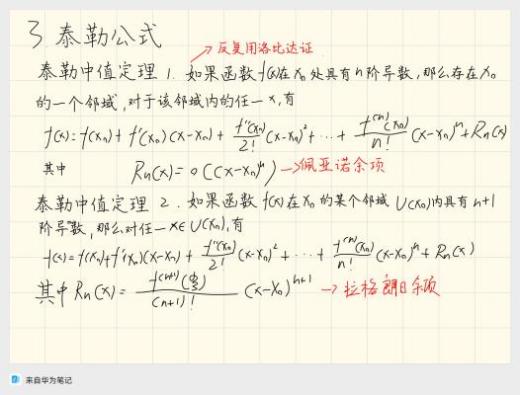 3 泰勒公式
→反复用洛比达证
泰勒中值定理 1. 如果函数f(x)在x₀处具有n阶导数,那么存在x₀
的一个邻域,对于该邻域内的任一x,有
f(x)=f(x₀)+f'(x₀)(x-x₀)+f''(x₀)/2!(x-x₀)²+…+f⁽ⁿ⁾(x₀)/n!(x-x₀)ⁿ+Rn(x)
其中 Rn(x)=o((x-x₀)ⁿ)→佩亚诺余项
泰勒中值定理 2. 如果函数f(x)在x₀的某个邻域U(x₀)内具有n+1
阶导数,那么对任一x∈U(x₀),有
f(x)=f(x₀)+f'(x₀)(x-x₀)+f''(x₀)/2!(x-x₀)²+…+f⁽ⁿ⁾(x₀)/n!(x-x₀)ⁿ+Rn(x)
其中Rn(x)=f⁽ⁿ⁺¹⁾(ξ)/(n+1)!(x-x₀)ⁿ⁺¹→拉格朗日余项
来自华为笔记